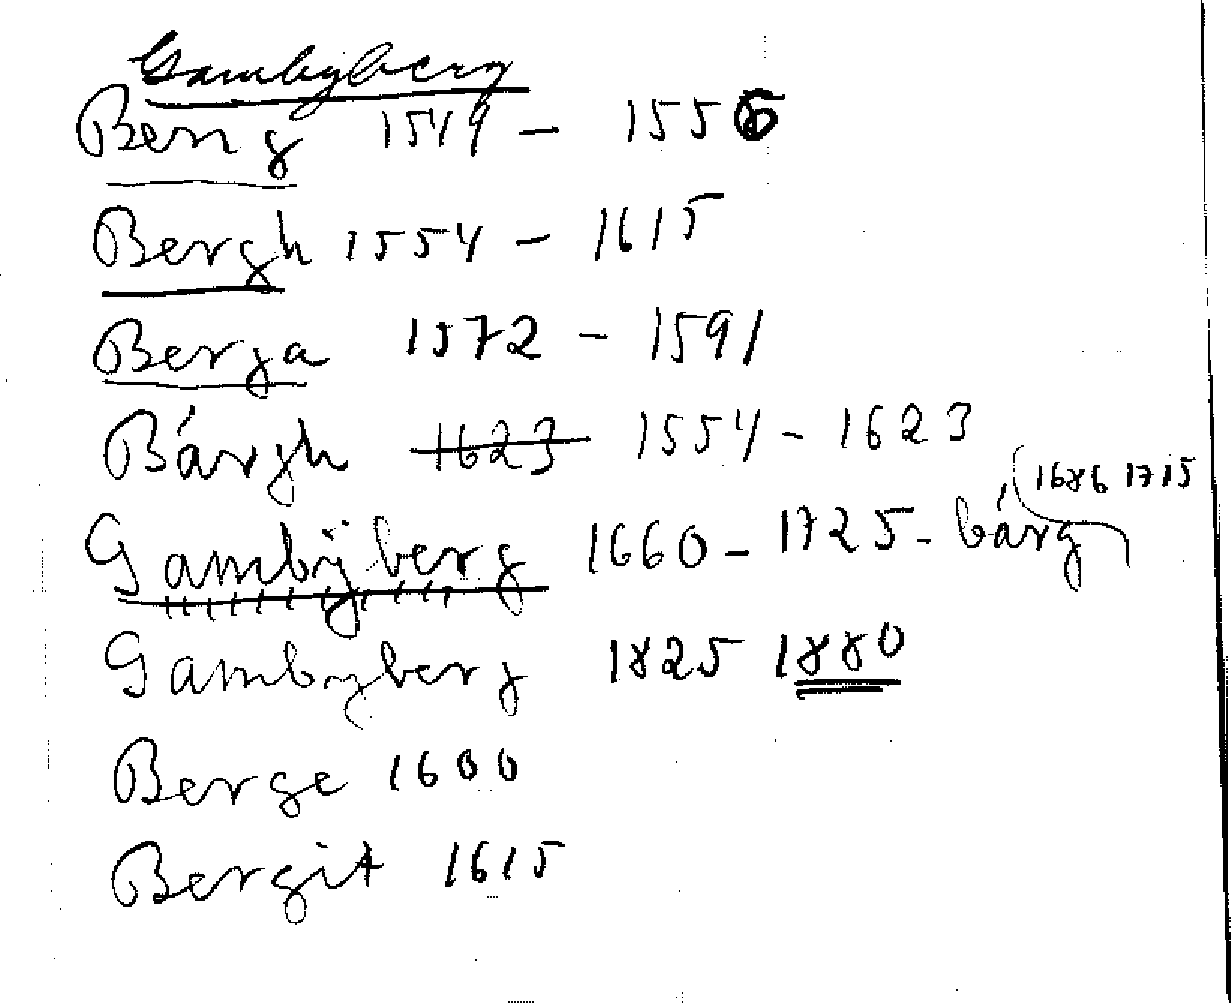 Gambyberg
Berg 1549 - 1556
Bergh 1554 - 1615
Berga 1572 - 1591
Bårgh 1623 1554 - 1623
1686 1715
Gambÿberg 1660 - 1725 - bårg
Gambyberg 1825 1880
Berge 1600
Bergit 1615